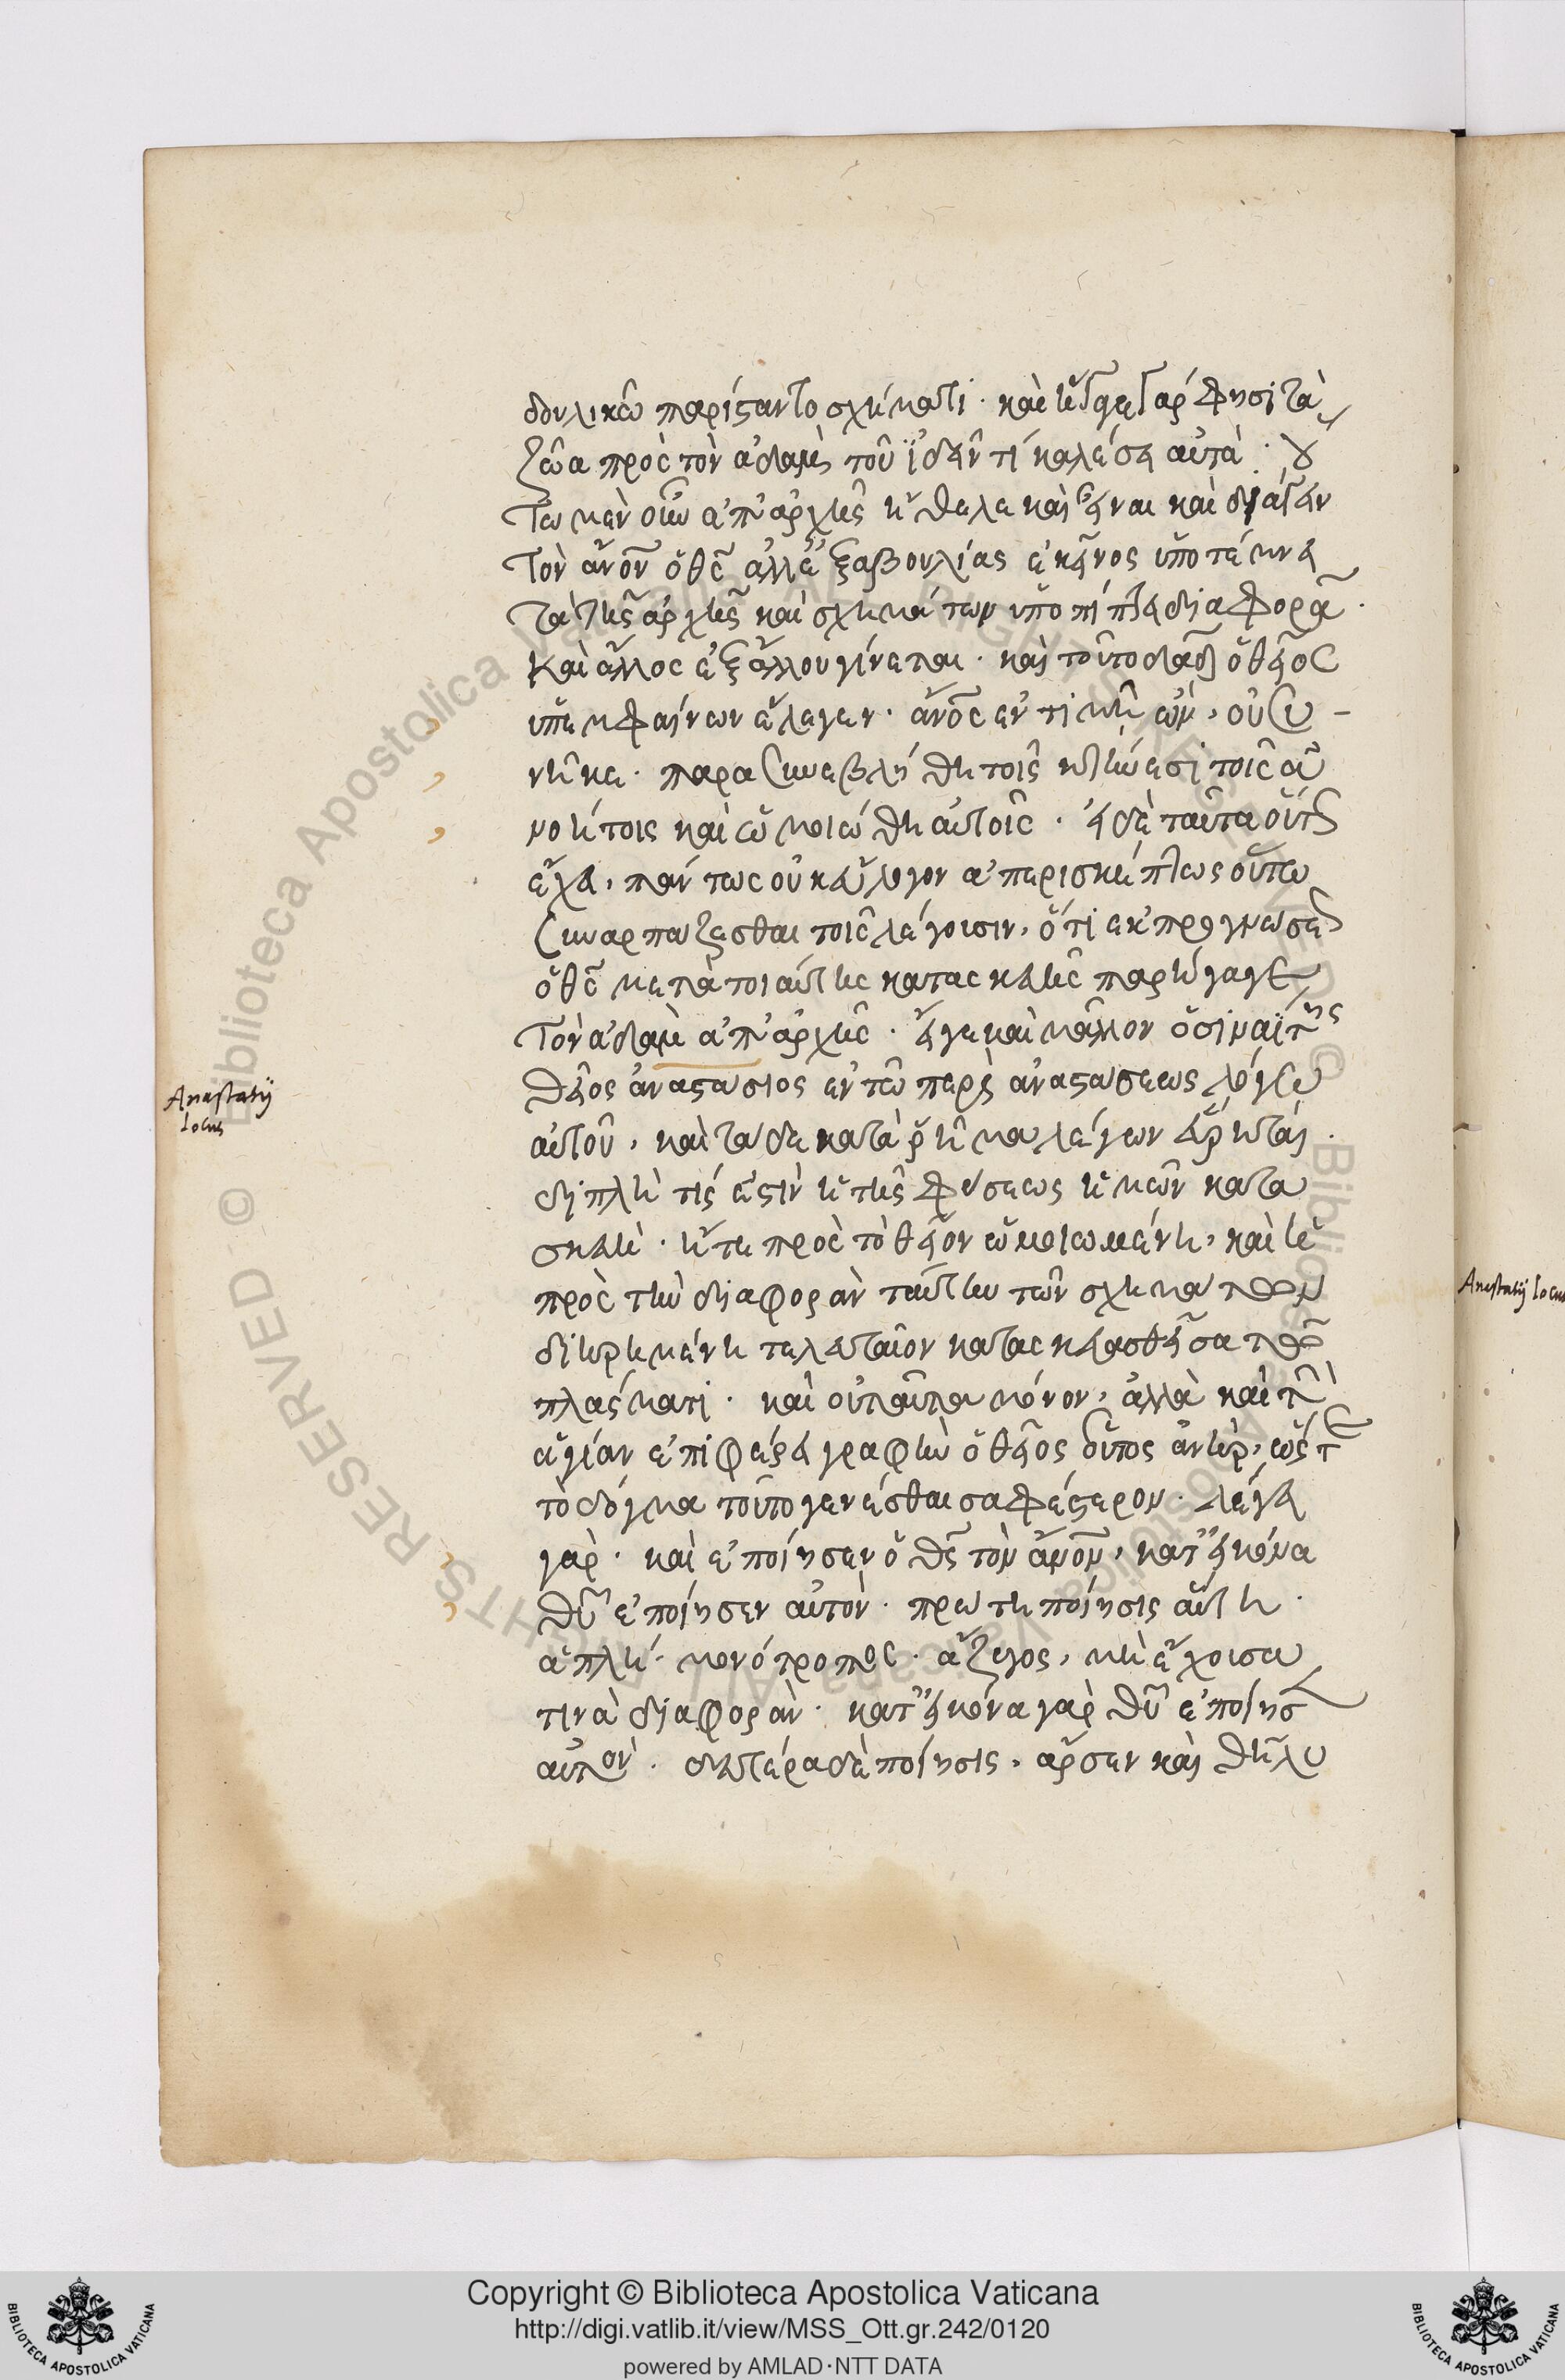 δουλικῶ παρίσταντο σχήματι · καὶ ἤγαγε γάρ φησι τὰ
ζῶα πρὸς τὸν ἀδὰμ τοῦ ἰδεῖν τί καλέσει αὐτά · οὐ
τω μὲν οὖν ἀπαρχῆς ἤθελε καὶ εἶναι καὶ διάγειν
τὸν ἄνον ὁ θς ἀλλ' ἐξ ἀβουλίας ἐκεῖνος ὑποτέμνει
τὰ τῆς ἀρχῆς καὶ σχημάτων ὑποπίπτει διαφορᾶ ·
καὶ ἄλλος ἐξ ἄλλου γίνεται · καὶ τοῦτο δαδ ὁ θεῖος
ὑπεμφαίνων ἔλεγεν · ἄνος ἐν τιμῆ ὢν, οὐ συ -
νῆκε · παρασυνεβλήθη τοῖς κτήνεσι τοῖς ἀ
νοήτοις καὶ ὡμοιώθη αὐτοῖς · εἰ δὲ ταῦτα οὕτως
ἔχει, πάντως οὐκ εὔλογον ἀπερισκέπτως οὕτω
συναρπάζεσθαι τοῖς λέγουσιν, ὅτι ἐκ προγνώσεως
ὁ θς μετὰ τοιαύτης κατασκευῆς παρήγαγε
τὸν ἀδὰμ ἀπαρχῆς · εἴγε καὶ μᾶλλον ὁ σιναΐτης
θεῖος ἀναστάσιος ἐν τῶ περὶ ἀναστάσεως λόγω
αὐτοῦ, καὶ τάδε κατὰ ῥῆμα λέγων εὕρηται ·
διπλῆ τίς ἐστιν ἡ τῆς φύσεως ἡμῶν κατα
σκευὴ · ἥτε πρὸς τὸ θεῖον ὡμοιωμένη, καὶ ἡ
πρὸς τὴν διαφορὰν ταύτην τῶν σχημάτων
διηρημένη τελευταῖον κατασκευασθεῖσα τῶ
πλάσματι · καὶ οὐ ταῦτα μόνον, ἀλλὰ καὶ τὴν
ἁγίαν ἐπιφέρει γραφὴν ὁ θεῖος οὗτος ἀνὴρ, ὥστε
τὸ δόγμα τοῦτο γενέσθαι σαφέστερον · λέγει
γὰρ · καὶ ἐποίησεν ὁ θς τὸν ἄνον, κατ' εἰκόνα
θυ ἐποίησεν αὐτόν · πρώτη ποίησις αὕτη ·
ἁπλῆ · μονότροπος · ἄζυγος, μὴ ἔχουσα
τινὰ διαφορὰν · κατ' εἰκόνα γὰρ θυ ἐποίησεν
αὐτὸν · δευτέρα δὲ ποίησις, ἄρσεν καὶ θῆλυ
Anastasij
locus
Anastasij locus
Copyright © Biblioteca Apostolica Vaticana
http://digi.vatlib.it/view/MSS_Ott.gr.242/0120
powered by AMLAD·NTT DATA
BIBLIOTECA APOSTOLICA VATICANA
BIBLIOTECA APOSTOLICA VATICANA